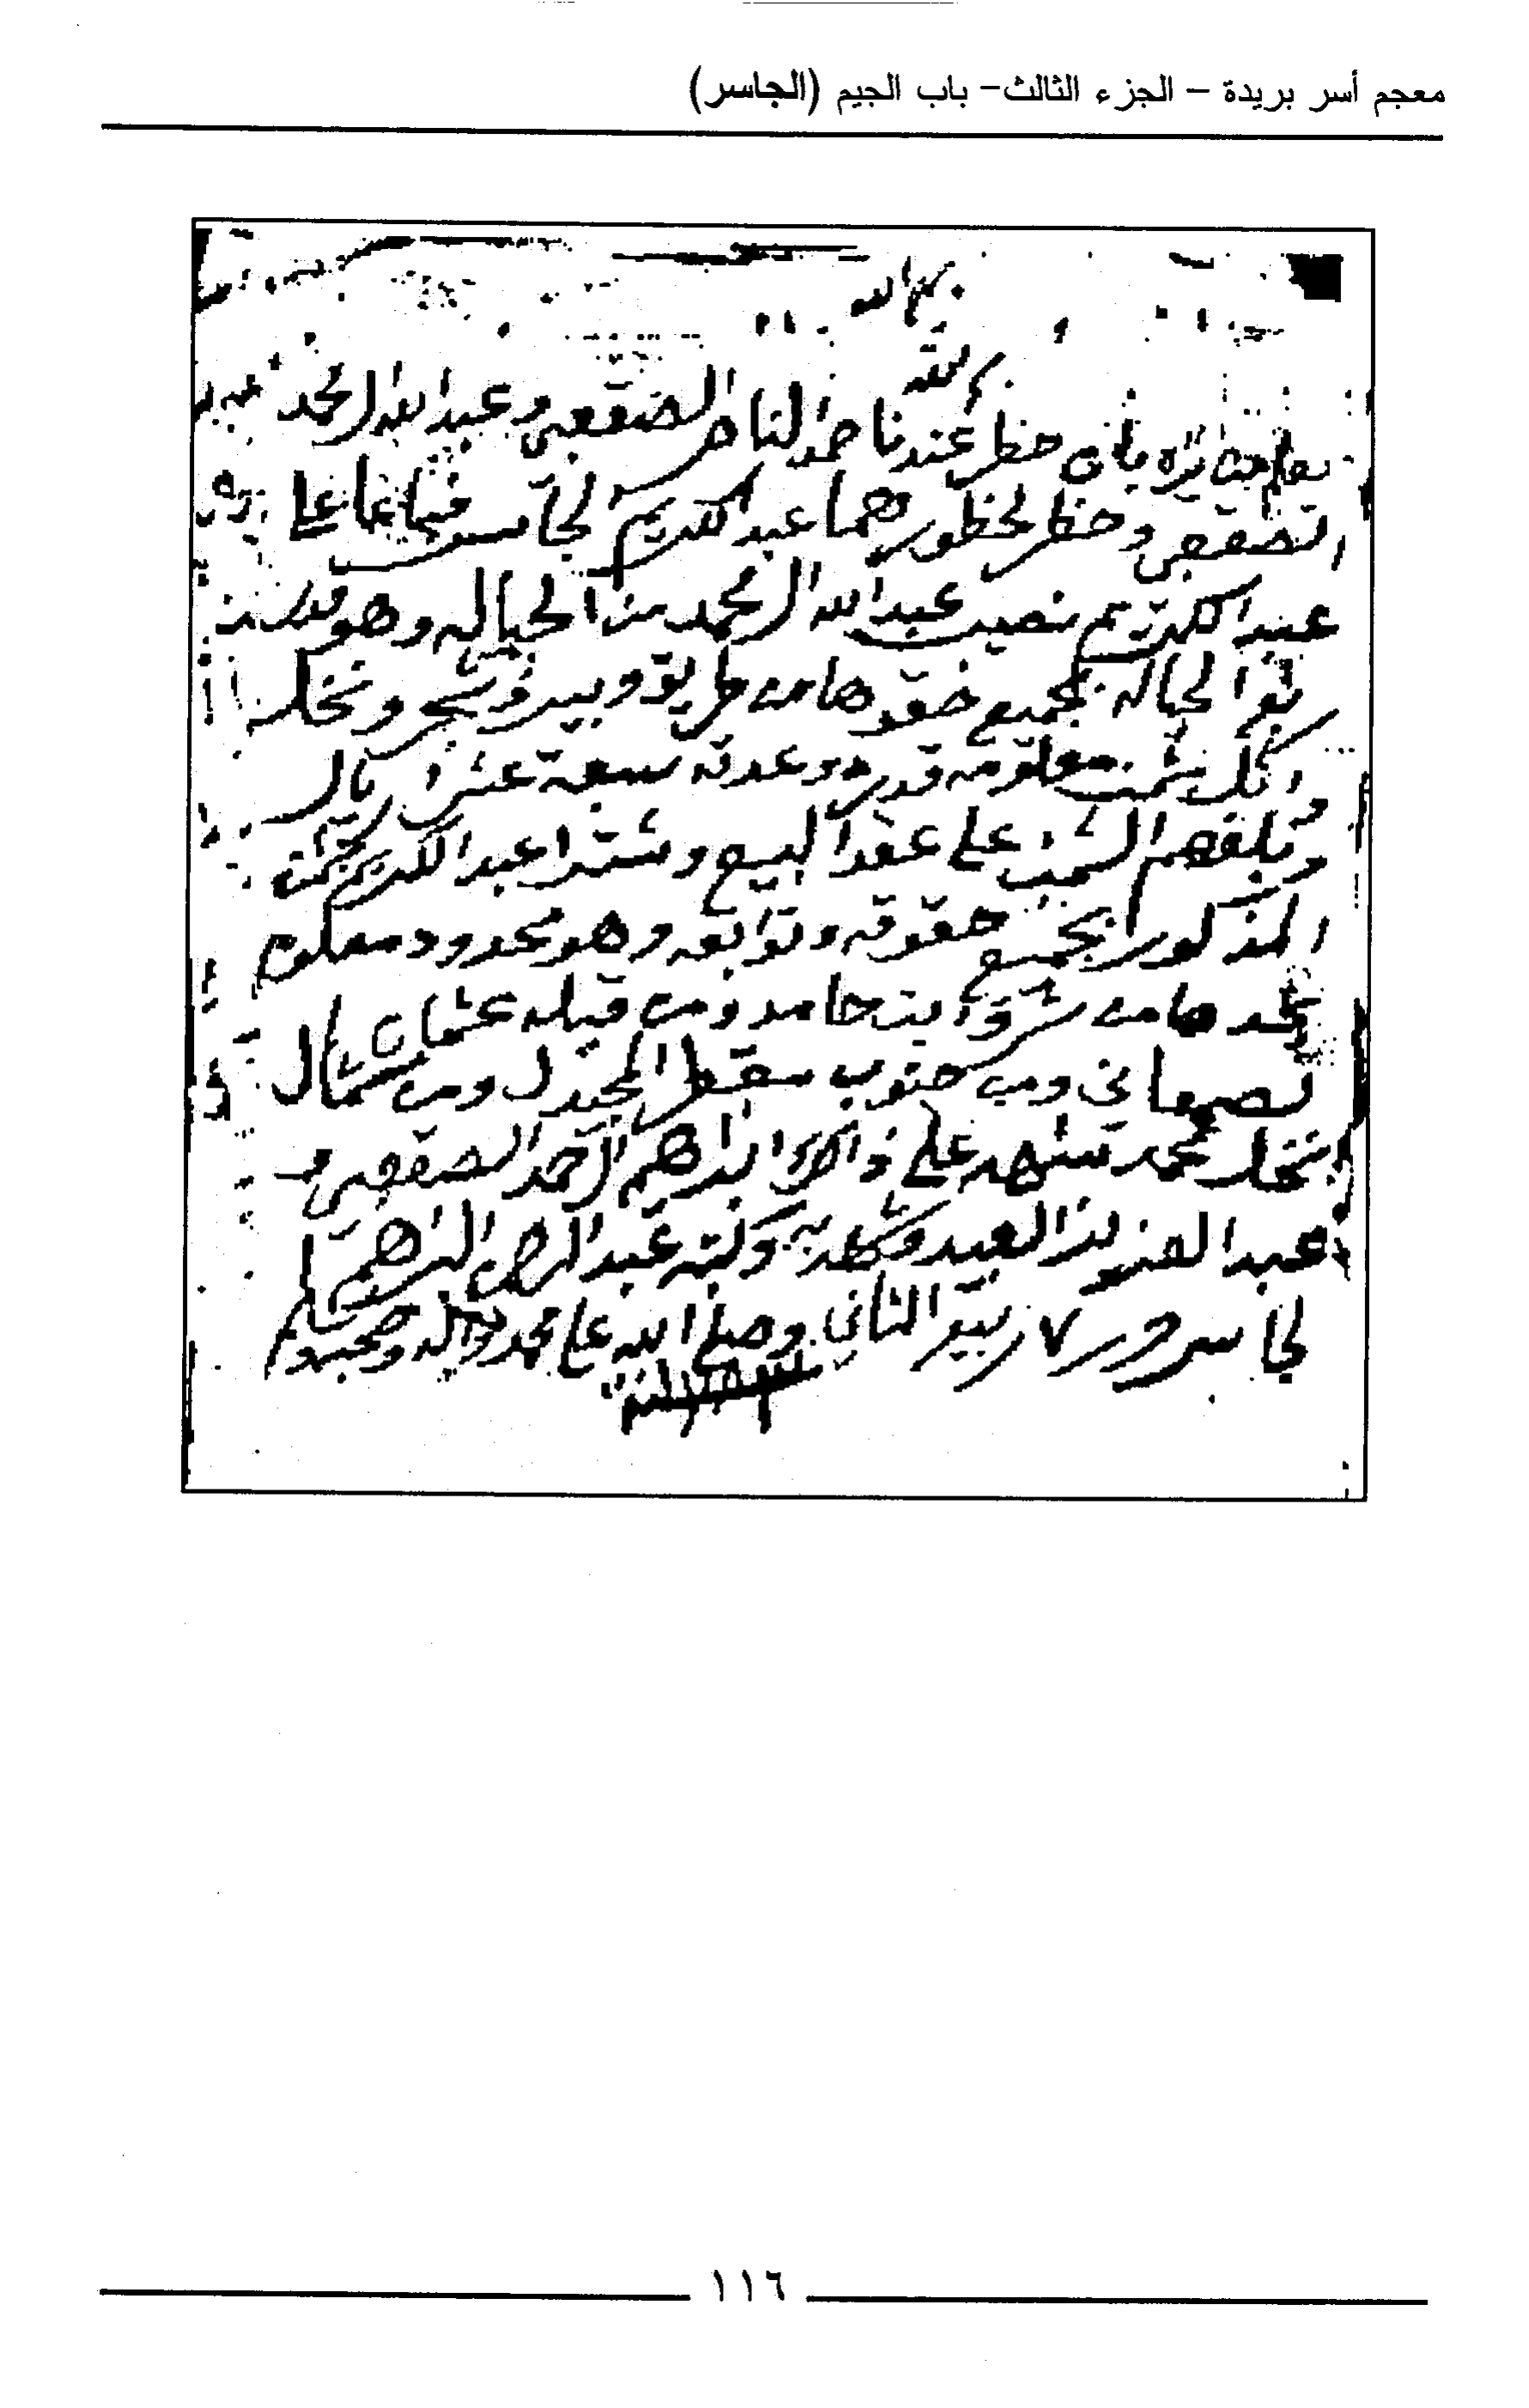 معجم أسر بريدة – الجزء الثالث– باب الجيم (الجاسر)
بسم الله
بسم الله
يعلم من يراه بان حظر عندنا حمد الناصر الصقعبي وعبدالله المحمد
الصقعبي وحظر لحظورهما عبدالكريم الجاسر فباعا على
عبدالكريم نصيب عبدالله المحمد من الحياله وهو
الحياله بجميع حقوقها من طريق وبير وشجر ونخل
بثمن معلوم قدره وعدته سبعة عشر اريال
وبلغهم الثمن على عقد البيع وشترا عبدالكريم بثمن
المذكور بجميع حقوقه وتوابعه وهو محدود معلوم
يحدها من شرق بنت حامد ومن قبله عثمان
الصمعاني ومن جنوب سقط المجيدل ومن شمال
نخل محمد شهد على ذالك ابراهيم الاحمد الصقعبي و
عبدالعزيز العبيد وشهد به وكتبه عبدالرحمن البراهيم
الجاسر حرر ٧ ربيع الثاني وصلى الله على محمد واله وصحبه وسلم
١١٦